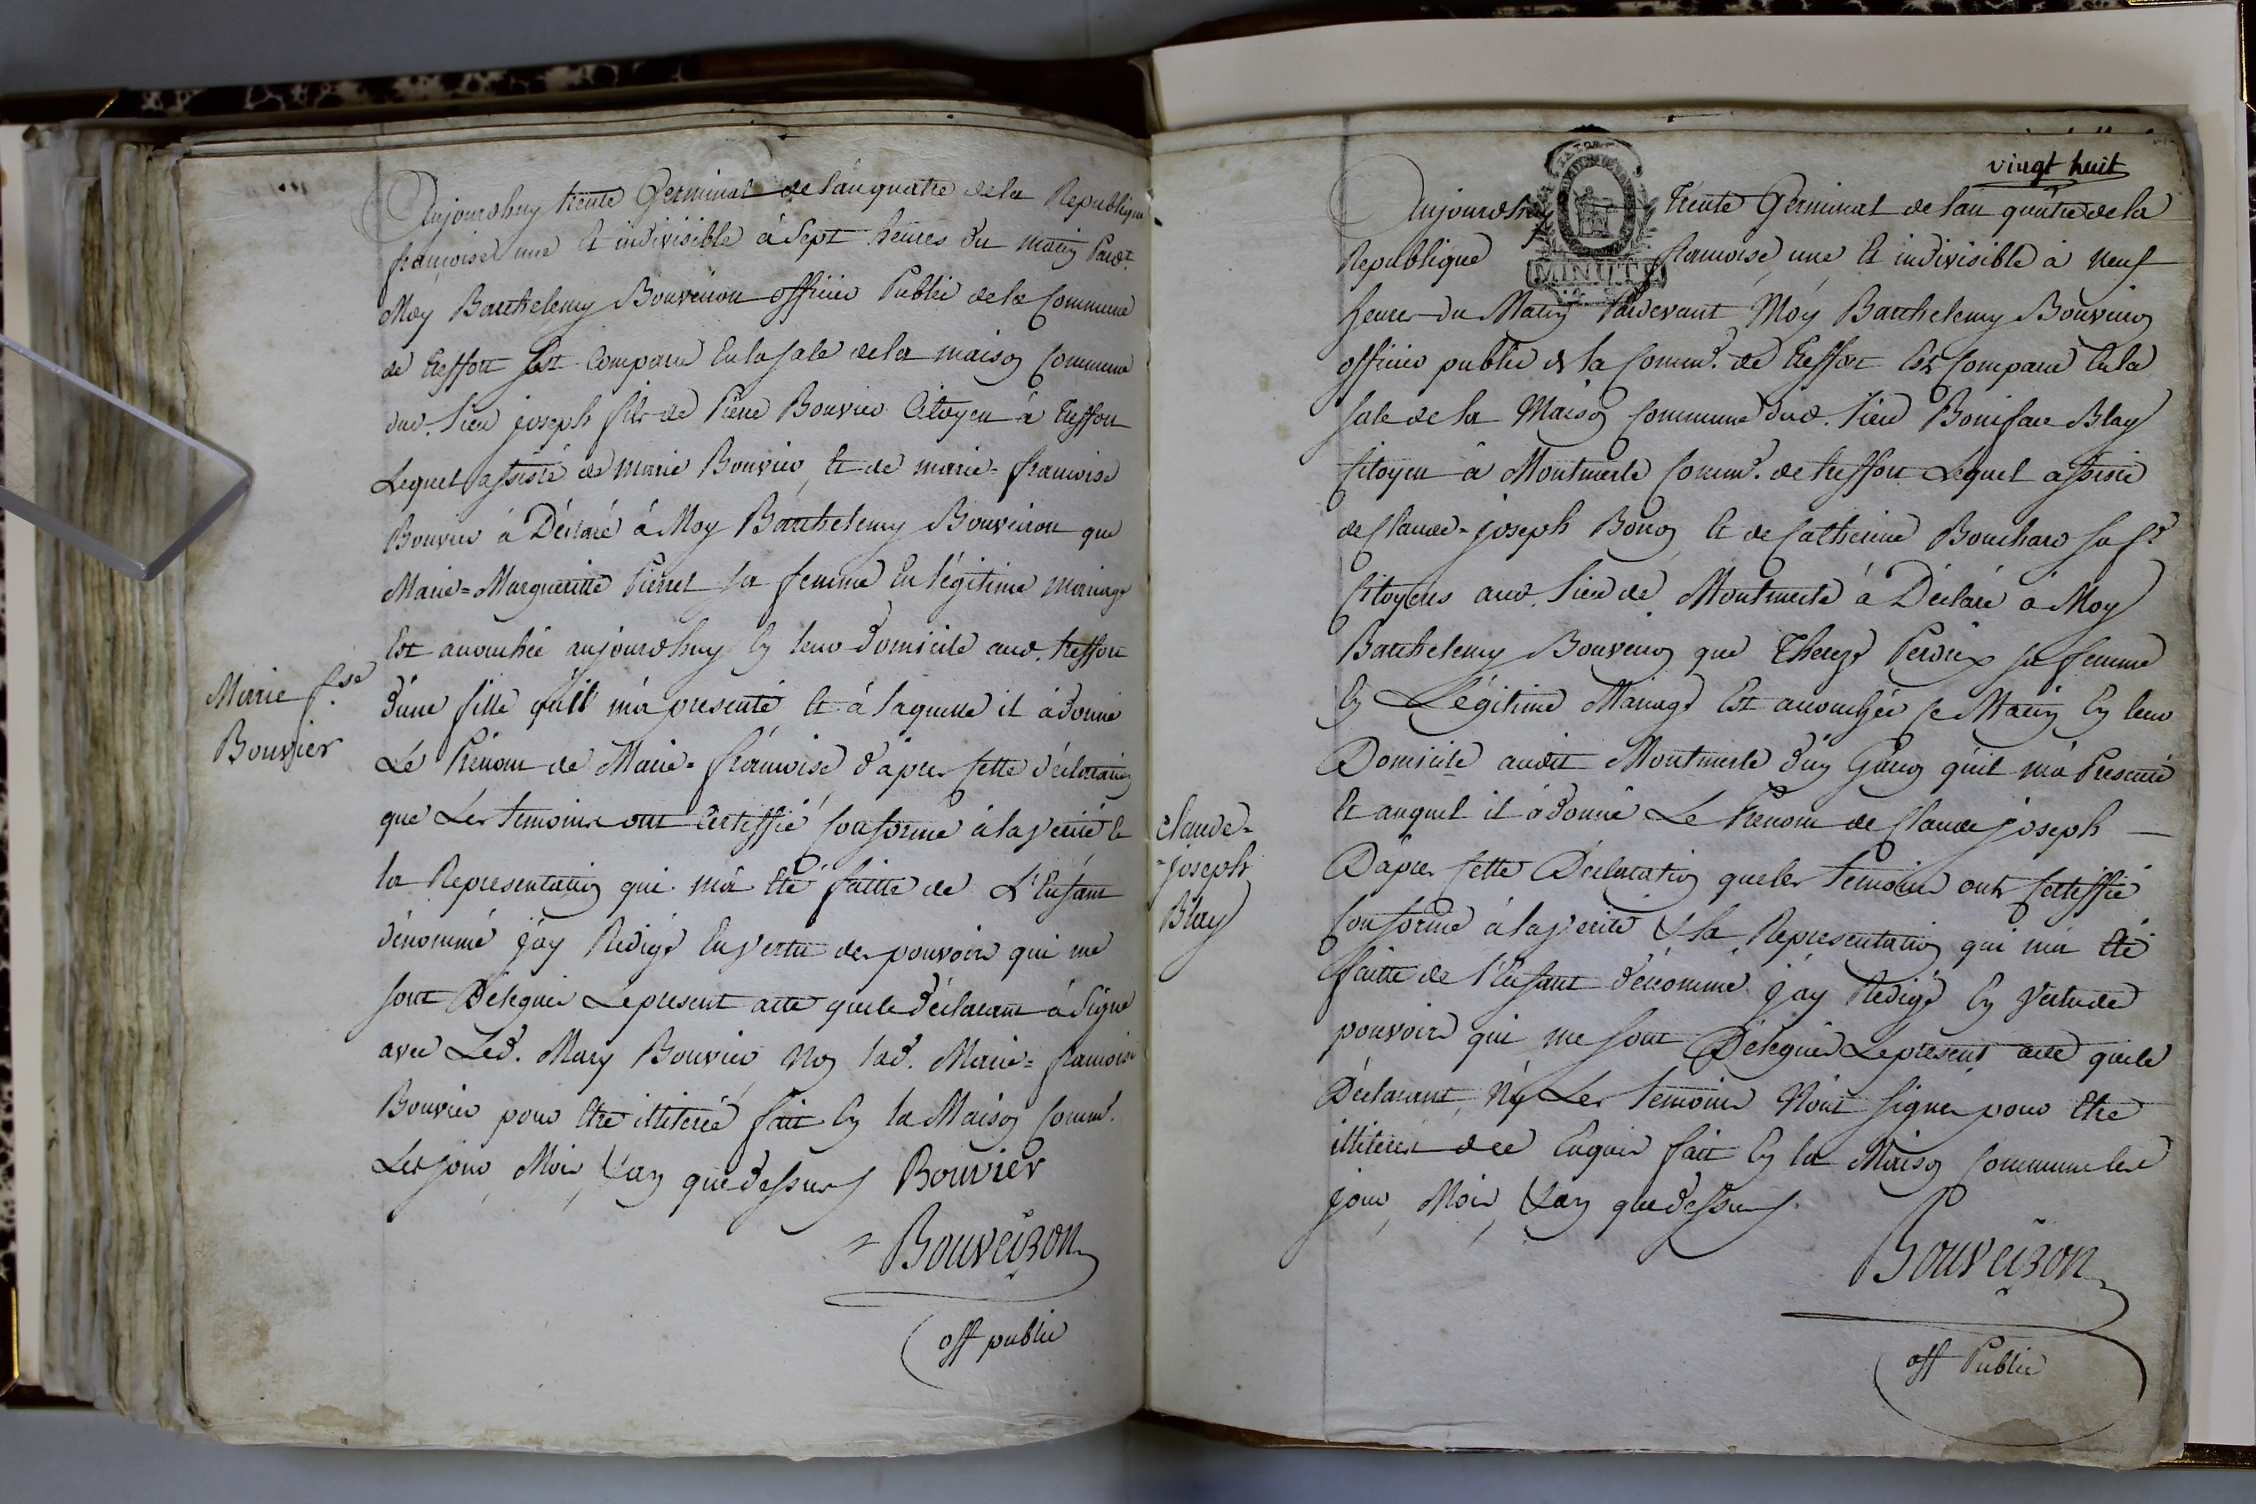 Aujourdhuy trente Germinal de l'an quatre de la Republique
françoise une et indivisible à Sept heures du matin Pardt.
Moy Barthelemy Bouveiron officier Public de la Commune
de treffort s'est Comparu En la sale de la maison Commune
dud. lieu joseph fils de Piere Bouvier Citoyen à treffort
Lequel assisté de marie Bouvier, et de marie=francoise
Bouvier à Déclaré à Moy Barthelemy Bouveiron que
Marie=Margueritte Pierret sa femme En légitime mariage
Est accouchée aujourdhuy En leur domicile aud. treffort
d'une fille qu'il m'a presenté et à laquelle il à donné
Le Prénom de Marie=françoise, d'apres Cette déclaration
que Les temoins ont Certiffié Conforme à la verité &
la Representation qui m'a Eté faitte de L'Enfant
dénommé j'ay Redigé En vertu des pouvoirs qui me
sont Délegués Le present acte que le déclarant à Signé
avec Led. Mary Bouvier Non lad. Marie=francoise
Bouvier pour Etre illiterée fait En la Maison Comme.
Les jour, Mois, & an que dessus Bouvier
Bouveiron
off public
Marie fse.
Bouvier
vingt huit
MINUTE
Aujourdhuy trente Germinal de l'an quatre de la
Republique francoise, une et indivisible à neuf
heures du Matin Pardevant Moy Barthelemy Bouveiron
officier public de la Comme. de treffort Est Comparu En la
sale de la Maison Commune dud. lieu Boniface Blay
Citoyen à Montmerle Comme. de treffort Lequel assisté
de Claude=joseph Boron et de Catherine Bouchard sa fe.
Citoyens aud. lieu de Montmerle à Déclaré à Moy
Barthelemy Bouveiron que Thereze Perdrix sa femme
En Légitime Mariage Est accouchée ce Matin En leur
Domicile audit Montmerle d'un Garçon qu'il m'a Presenté
Et auquel il à donné Le Prenom de Claude joseph
D'apres Cette Déclaration que les temoins ont Certiffié
Conforme à la verité & la Representation qui m'a Eté
faitte de l'Enfant dénommé j'ay Redigé En Vertu de
pouvoirs qui me sont Délegués Le present acte que le
Déclarant, Ny Les temoins N'ont signés pour Etre
illiterés de ce Enquis fait En la Maison Commune les
jour, Mois, & an que dessus.
Bouveiron
off Public
Claude=
=joseph
Blay